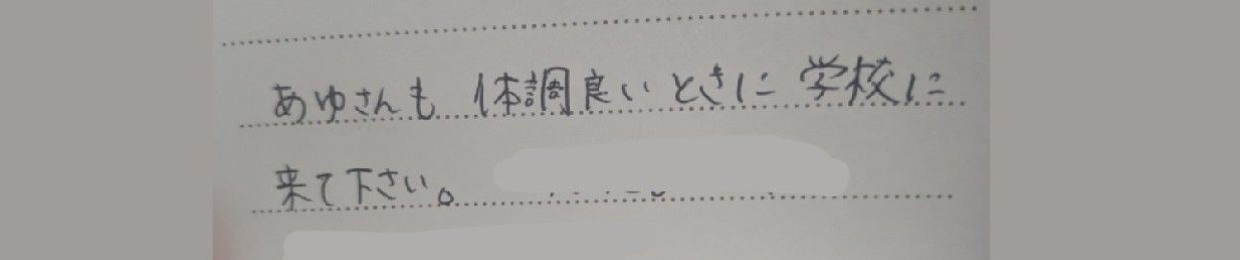 あゆさんも 体調良いときに 学校に
来て下さい。